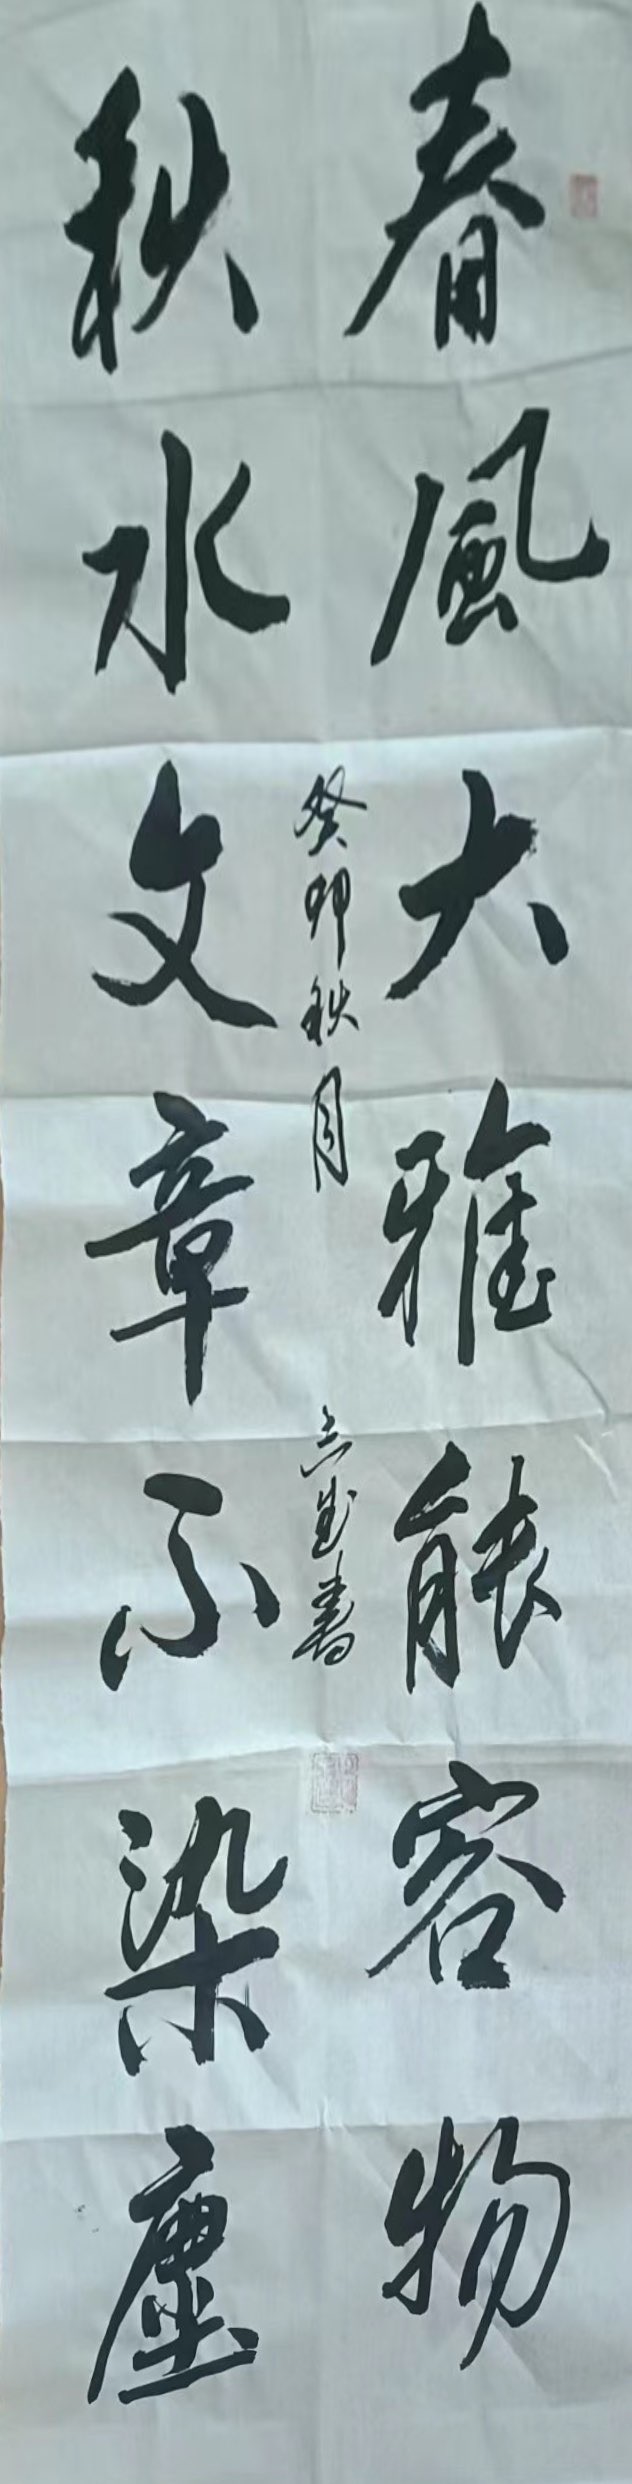 春風大雅能容物
秋水文章不染塵
癸卯秋月
志生書